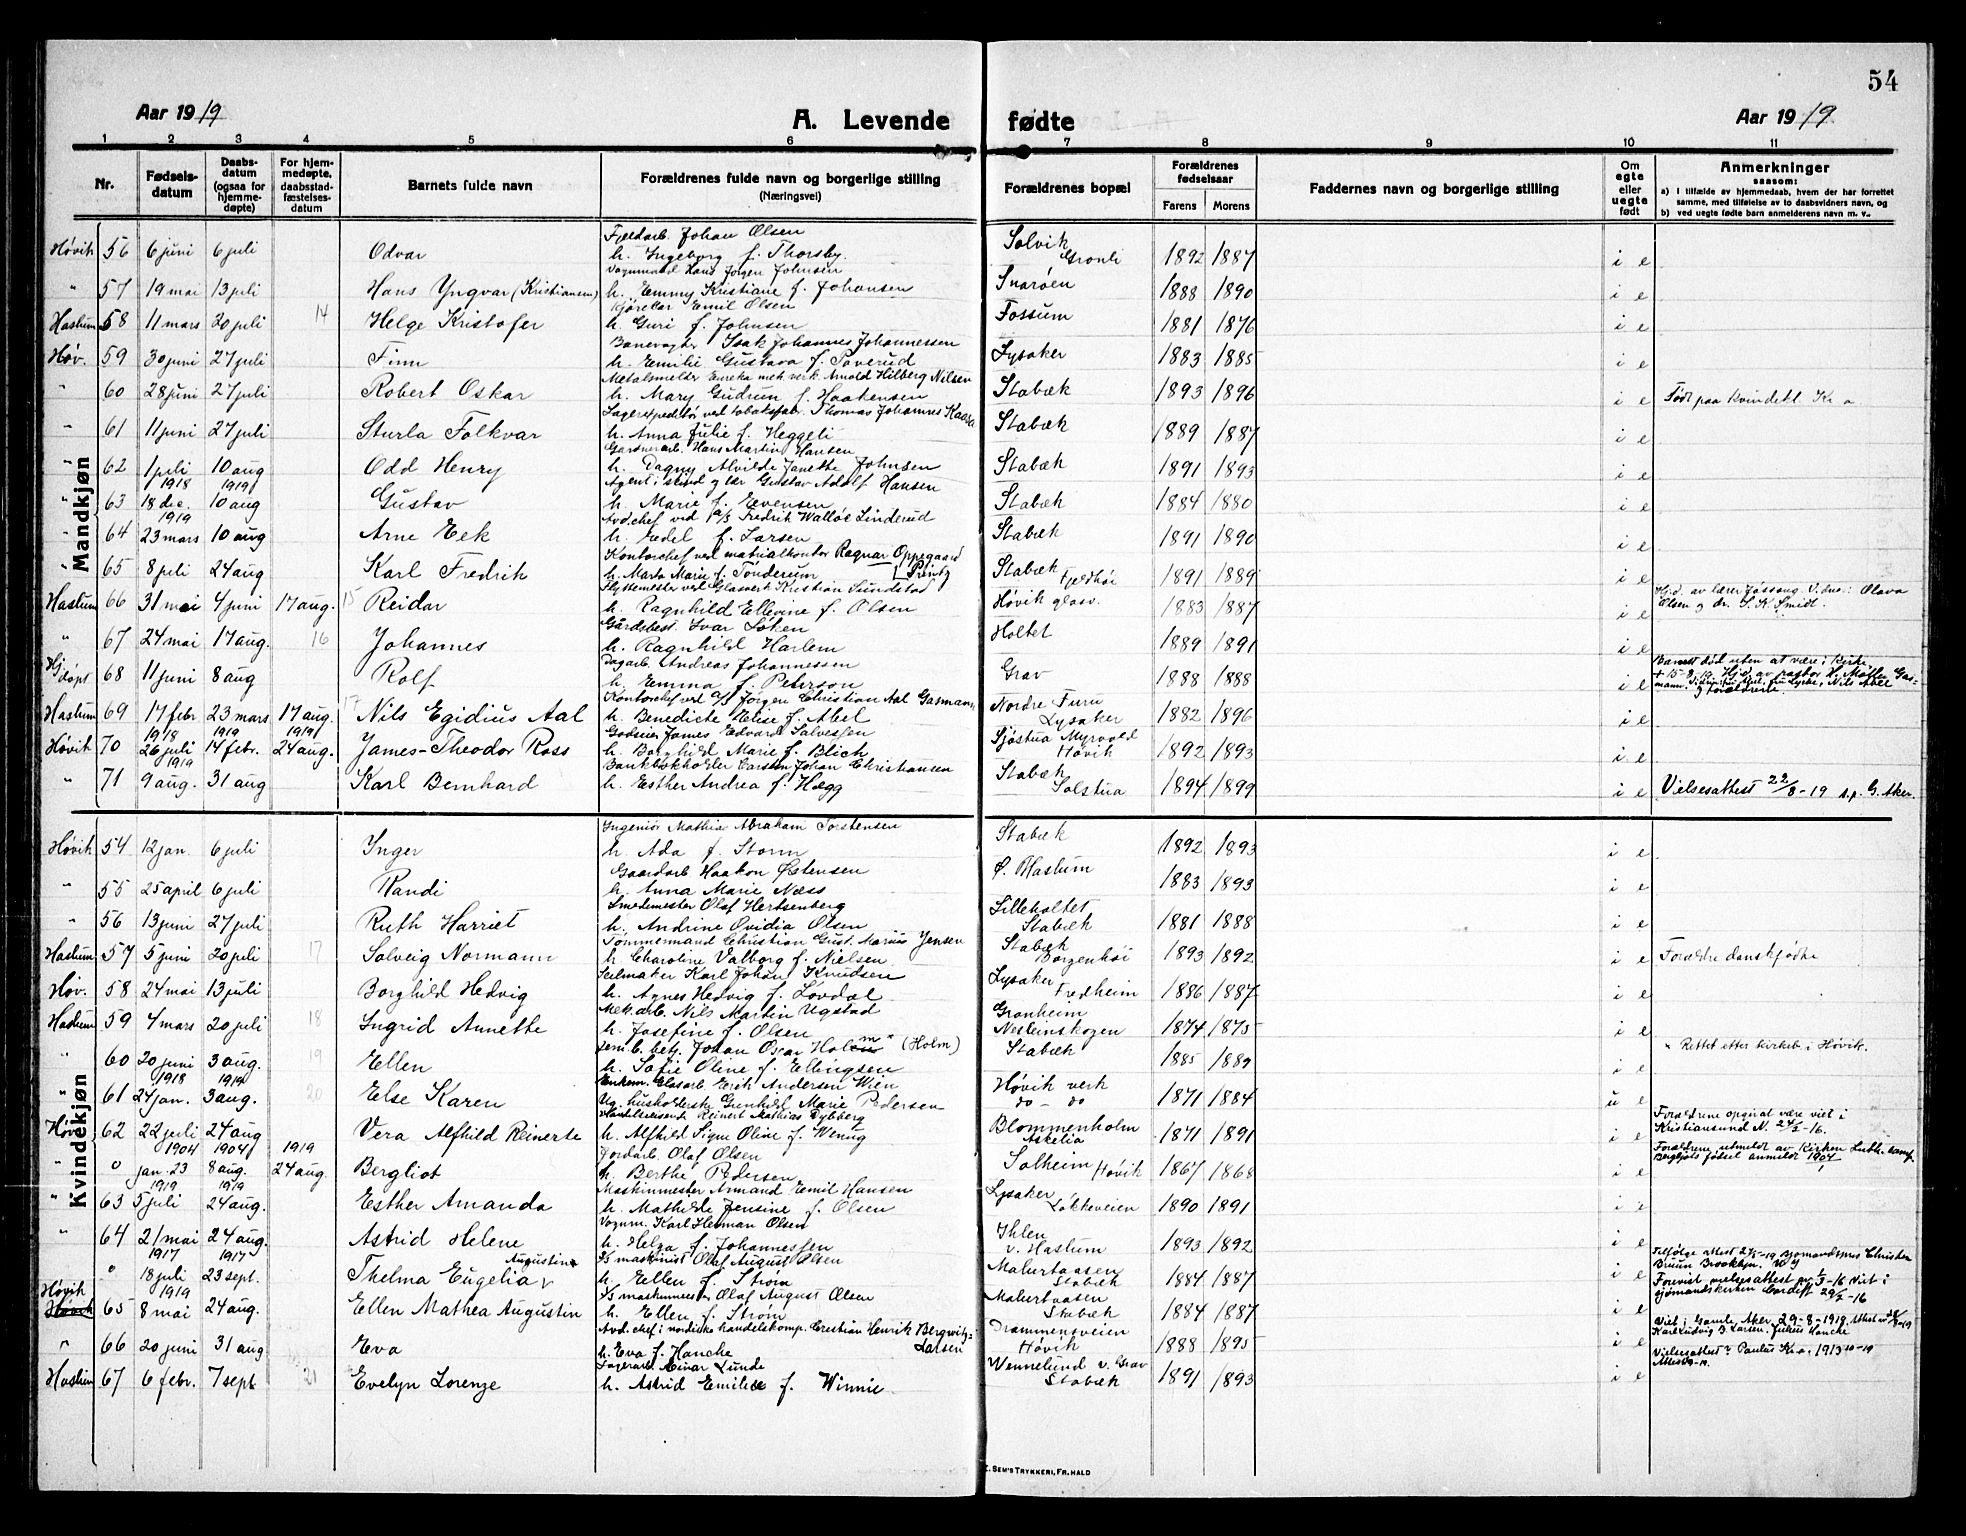 54
Aar 1919
A. Levende
fødte
Aar 1919
1 2 3 4 5 6 7 8 9 10 11
Nr.
Fødsels-
datum
Daabs-
datum
(ogsaa for
hjemme-
døpte)
For hjem-
medøpte,
daabsstad-
fæstelses-
datum
Barnets fulde navn
Forældrenes fulde navn og borgerlige stilling
(Næringsvei)
Forældrenes bopæl
Forældrenes
fødselsaar
Farens Morens
Faddernes navn og borgerlige stilling
Om
egte
eller
uegte
født
Anmerkninger
saasom:
a) I tilfælde av hjemmedaab, hvem der har forrettet
samme, med tilføielse av to daabsvidners navn, og
b) ved uegte fødte barn anmelderens navn m. v..
Mandkjøn
Fjeldarb. Johan Olsen
Høvik 56 6 juni 6 juli Odvar h. Ingeborg f. Thorsby. Solvik Gronli 1892 1887 i e
Vognmand Hans Jørgen Johnsen
" 57 19 mai 13 juli Hans Yngvar (Kristiansen) h. Emmy Kristiane f. Johansen Snarøen 1888 1890 i e
Kjørekar Emil Olsen
Haslum 58 11 mars 20 juli 14 Helge Kristofer h. Guri f. Johnsen Fossum 1881 1876 i e
Banevogter Isak Johannes Johannessen
Høv. 59 30 juni 27 juli Finn h. Emilie Gustava f. Poverud Lysaker 1883 1885 i e
Metalsmelder Eureka mek. verk. Arnold Hilberg Nilsen
" 60 28 juni 27 juli Robert Oskar h. Mary Gudrun f. Haakensen Stabæk 1893 1896 i e Født paa kvindekl Kr a
Lagerexpeditør ved tobaksfab. Thomas Johannes Kaara
" 61 11 juni 27 juli Sturla Folkvar h. Anna Julie f. Heggeli Stabæk 1889 1887 i e
Gardnerarb. Hans Martin Hansen
" 62 1 juli 10 aug Odd Henry h. Dagny Alvilde Janette Johnsen Stabæk 1891 1893 i e
1918 1919 Agent i skind og lær Gustav Adolf Hansen
" 63 18 dec. 10 aug Gustav h. Marie f. Evensen Stabæk 1884 1880 i e
1919 Avd.chef ved A/S Fredrik Walløe Linderud
" 64 23 mars 10 aug Arne Eek h. Edel f. Larsen Stabæk 1891 1890 i e
Kontorchef ved matrialkontor Ragnar Oppegaard
" 65 8 juli 24 aug Karl Fredrik h. Marta Marie f. Tønderum [Printz Stabæk Fjeldhøi 1891 1889 i e
Hyttemester ved Glasverk Kristian Sundstad
Haslum 66 31 mai 4 juni 17 aug. 15 Reidar h. Ragnhild Ellevine f. Olsen Høvik glasv. 1883 1887 i e Hj.d. av lærer Jøssang. V.dno: Olava
Olsen og dr. S. K. Smidt.
Gårdsbest. Ivar Løken
" 67 24 mai 17 aug. 16 Johannes h. Ragnhild Harlem Holtet 1889 1891 i e
Dagarb. Andreas Johannessen
Hj.døpt 68 11 juni 8 aug Rolf h. Emma f. Peterson Grav 1888 1888 i e Barnet død uten at være i kirke.
Kontorchef ved A/S Jørgen Christian Aal Gasmann
Haslum 69 17 febr 23 mars 17 aug. 17 Nils Egidius Aal h. Benedicte Elise f. Abel Nordre Furu Lysaker 1882 1896 i e
1918 1919 1919 Godseier James Edvard Salvessen
Høvik 70 26 juli 14 febr. 24 aug. James-Theodor Ross h. Borghild Marie f. Blich Sjøstua Myrvold Høvik 1892 1893 i e
1919 Bankbokholder Carsten Johan Christiansen
" 71 9 aug. 31 aug Karl Bernhard h. Esther Andrea f. Hægg Stabæk Solstua 1894 1899 i e Vielsesattest 22/8-19 s.p. G. Aker.
Kvindekjøn
Ingeniør Mathia Abraham Torstensen
Høvik 54 12 jan. 6 juli Inger h. Ada f. Storm Stabæk 1892 1893 i e
Gaardarb Haakon Østensen
" 55 25 april 6 juli Randi h. Anna Marie Næss Ø. Haslum 1883 1893 i e
Smedmester Olaf Hertsenberg
" 56 13 juni 27 juli Ruth Harriet h. Andrine Ovidia Olsen Lilleholtet Stabæk 1881 1888 i e
Tømmermand Christian Gust. Marius Jensen
Haslum 57 5 juni 20 juli 17 Solveig Normann h. Charoline Valborg f. Nielsen Stabæk Borgenhøi 1893 1892 i e Forældre danskfødte
Seilmaker Karl Johan Knudsen
Høv. 58 24 mai 13 juli Borghild Hedvig h. Agnes Hedvig f. Løvdal Lysaker Fredheim 1886 1887 i e
Mek.arb. Nils Martin Ugstad
Haslum 59 4 mars 20 juli 18 Ingrid Annette h. Josefine f. Olsen Granheim Nesteinskogen 1874 1875 i e
Jernb. betj. Johan Oscar Holm " (Holm)
" 60 20 juni 3 aug. 19 Ellen h. Sofie Oline f. Ellingsen Stabæk 1885 1889 i e " Rettet etter kirkeb. i Høvik.
1918 1919 Enkem. Glasarb. Erik Andersen Wien
" 61 24 jan. 3 aug. 20 Else Karen Ug. husholderske Grenhild Marie Pedersen Høvik verk do - do 1871 1884 u e
Handelsreisende Reinert Mathias Dybberg
Høv. 62 22 juli 24 aug Vera Alfhild Reinerte h. Alfhild Signe Oline f. Wenug Blommenholm Askelia 1871 1891 i e Forældrene opgivat være viet i
Kristiansund N. 24/3-16.
1904 1904 1919 Jordarb. Olaf Olsen
" o jan. 23 8 aug. 24 aug. Bergliot h. Berthe Pedersen Solheim Høvik 1867 1868 i e Forældrene utmeldt av kirken Luth. samf.
Bergljots fødsel anmeldt 1904
1919 1919 Maskinmester Armand Emil Hansen
" 63 5 juli 24 aug. Esther Amanda h. Mathilde Jensine f. Olsen Lysaker Løkkeveien 1890 1891 i e
Vognm. Karl Herman Olsen
" 64 21 mai 24 aug. Astrid Helene h. Helga f. Johannessen Ihlen v. Haslum 1893 1892 i e
1917 1917 Augustine Ds maskinist Olaf August Olsen
o 18 juli 23 sept. Thelma Eugelia v h. Ellen f. Strøm Malurtaasen Stabæk 1884 1887 i e Tilfølge attest 24/5-19 Sjømandspres Christen
Bruun Brooklyn. N Y
1919 Ds maskinmester Olaf August Olsen
Høvik 65 8 mai 24 aug. Ellen Mathea Augustin h. Ellen f. Strøm Malurtaasen Stabæk 1884 1887 i e Forevist vielsesattest av 1/3-16 Viet i
sjømandskirken Cardiff 29/2-16
Avd. chef i nordiske handelskomp. Crestian Henrik Bergwitz-
" 66 20 juni 31 aug Eva h. Eva f. Hanche Larsen Drammensveien Høvik 1888 1895 i e Viet i Gamle Aker 29-8-1919
Karl Ludvig B. Larsen. Julius Hanche
Lagerarb. Einar Lunde
Haslum 67 6 febr. 7 sept 21 Evelyn Lorenze h. Astrid Emilie f. Winnie Wennelund v. Grav Stabæk 1891 1893 i e Vielsesattest: Paulus Kr.a. 1913
E. SEM'S TRYKKERI, FR.HALD